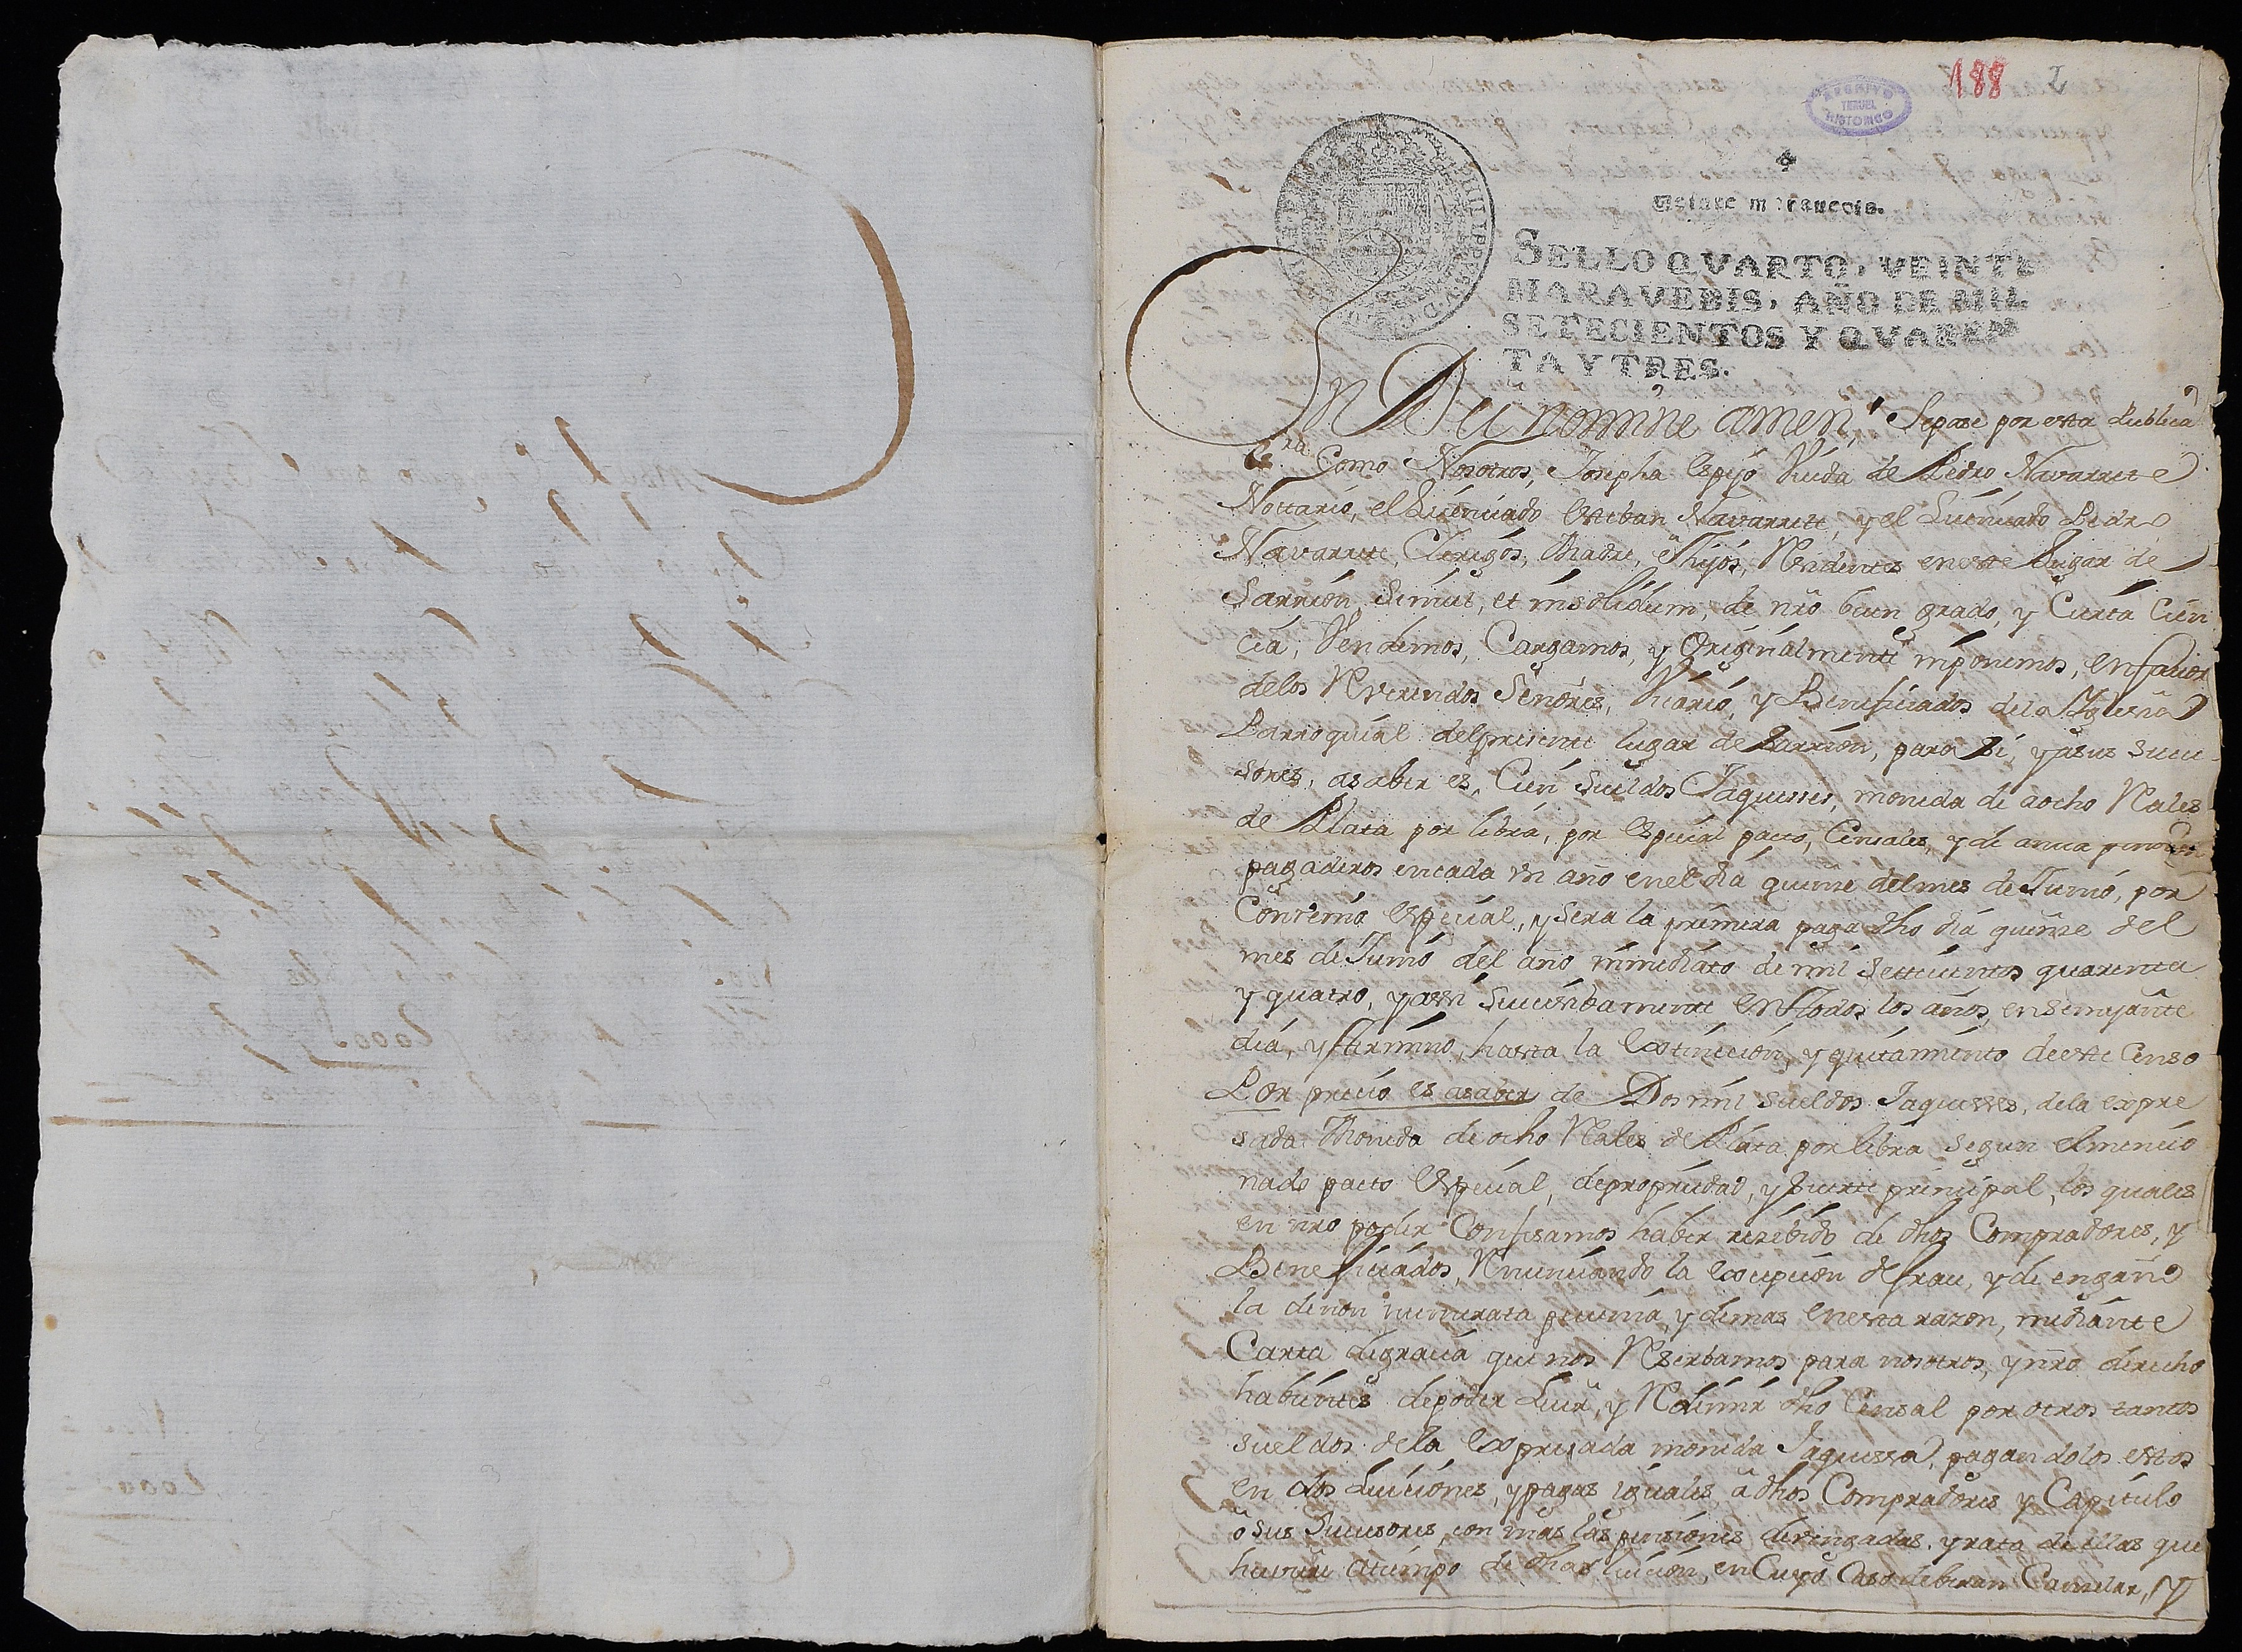 188 2
ARCHIVO
TERUEL
HISTORICO
Veinte marauedis.
SELLO QVARTO, VEINTE
MARAVEDIS, AÑO DE MIL
SETECIENTOS Y QVAREN
TA Y TRES.
In Dei nomine amen, Sepase por esta Publica
Como Nosotros, Josepha Espejo Viuda de Pedro Navarrete
Nottario, el Licenciado Esteban Navarrete, y el Licenciado Pedro
Navarrete, Clerigos, Madre, e hijos, Residentes en este Lugar de
Sarrion, Simul, et insolidum, de nro buen grado, y Cierta Cien
cia, Vendemos, Cargamos, y Originalmente imponemos, en favor
de los Reverendos Señores, Vicario, y Beneficiados de la Yglesia
Parroquial del presente lugar de Sarrion, para si, y a sus suce
sores, a saber es, Cien Sueldos Jaquesses, moneda de a ocho Rales
de Plata por libra, por especial pacto, Censales, y de anua pension
pagaderos en cada un año en el dia quinse del mes de Junio, por
Convenio especial, y sera la primera paga dho dia quinse del
mes de Junio del año inmediato de mil settecientos quarenta
y quatro, y assi Sucesibamente en todos los años, en semejante
dia, y termino, hasta la Extincion, y quitamiento de este Censo
Por precio es asaber de Dos mil sueldos Jaquesses, de la expre
sada Moneda de ocho Rales de Plata por libra segun el mencio
nado pacto especial, de propriedad, y suerte principal, los quales
en nro poder Confesamos haber rezebido de dhos Compradores, y
Beneficiados, Renunciando la Excepcion de frau, y de engaño
la de non numerata pecunia, y demas en esta razon, mediante
Carta de gracia que nos Reserbamos para nosotros, y nro derecho
habientes de poder Luir, y Redimir dho Censal por otros tantos
sueldos de la Expresada moneda Jaquessa, pagandolos estos
en dos Luiciones, y pagas iguales â dhos Compradores y Capitulo
ô sus Sucesores, con mas las pensiones devengadas, y rata de ellas que
huviere al tiempo de dhas luicion, en Cuyo Caso deberan Canzelar, y